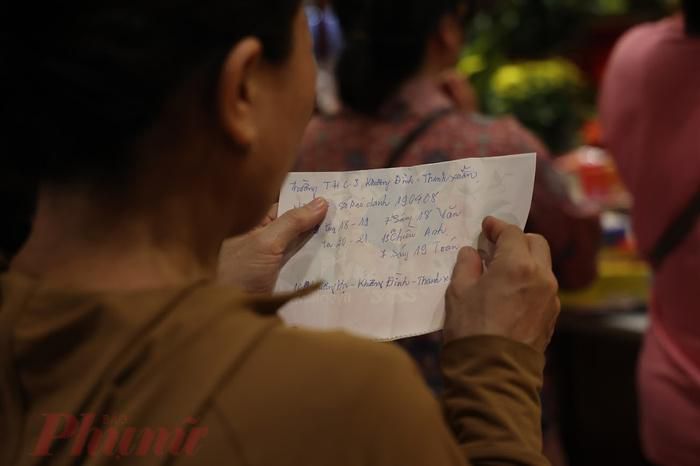 Trường T.H.C.S Khương Đình - Thanh Xuân
Số báo danh 190408
18 - 19 7 Sáng 18 Văn
20 - 21 Chiều Anh
7 Sáng 19 Toán
- Khương Đình - Thanh
BÁO
Phụ nữ